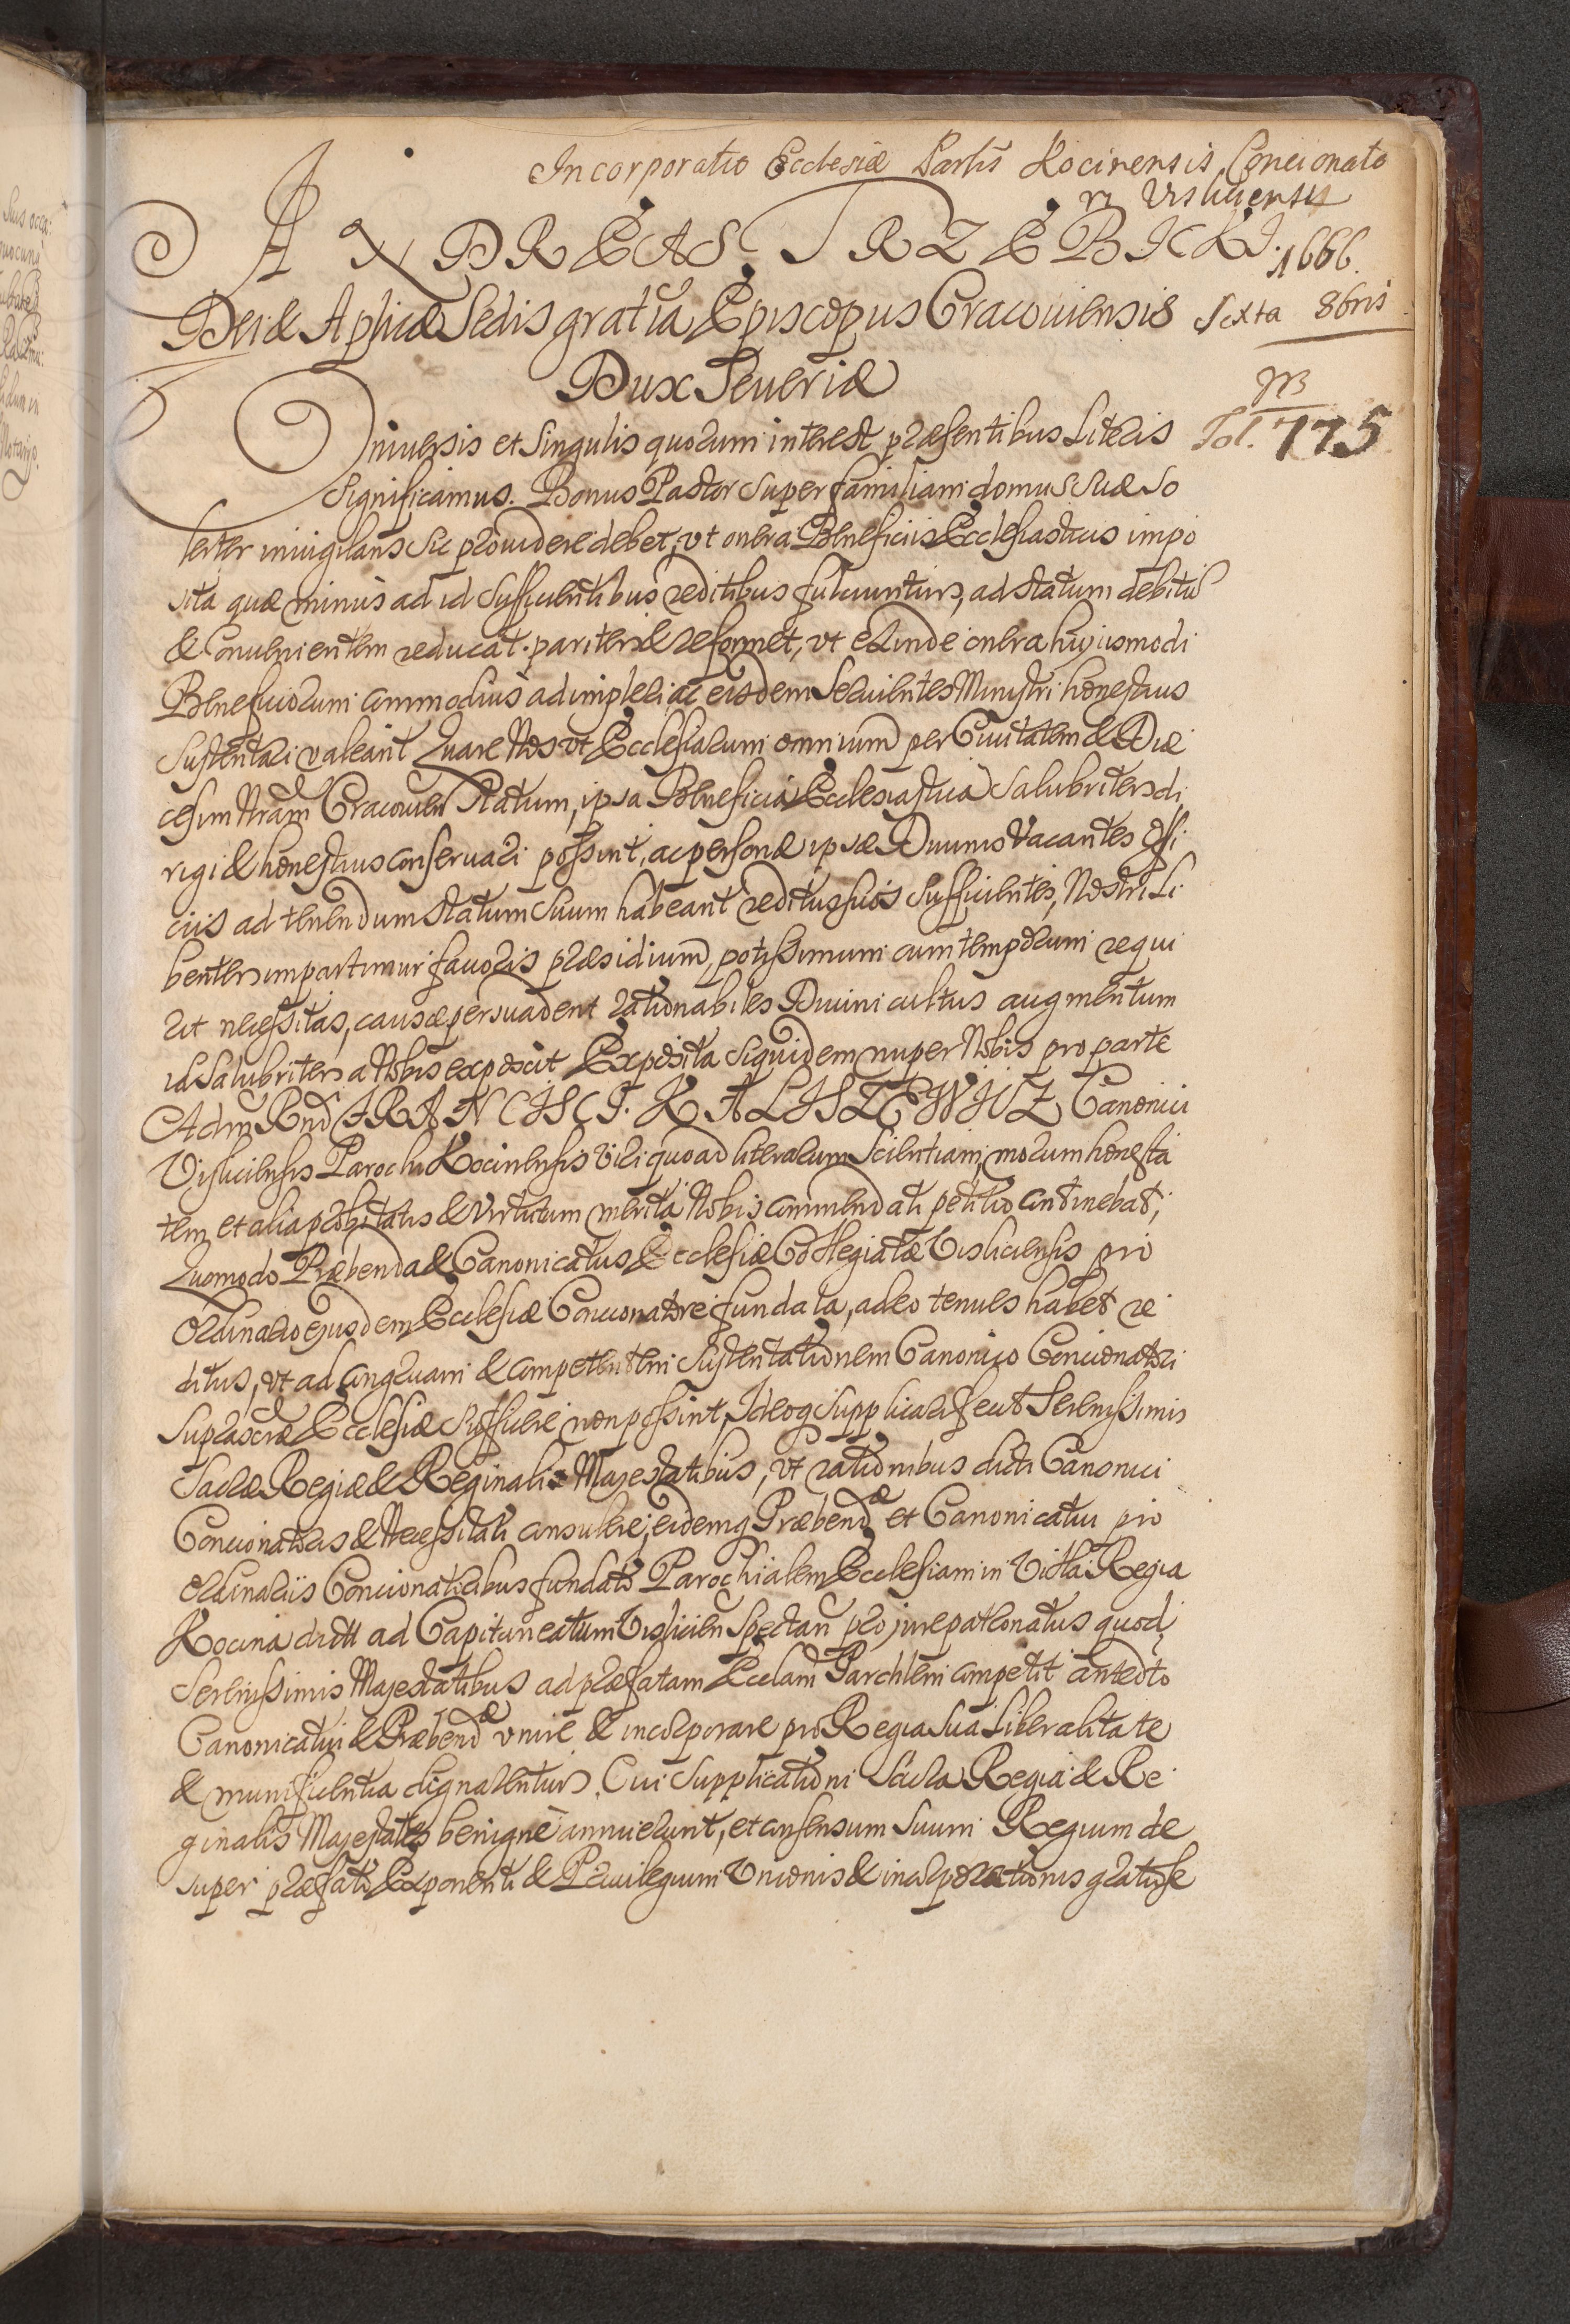 Incorporatio Ecclesiæ Partis Kocinensis Concionato
ri Visliciensi
ANDREAS TRZEBICKI. 1666.
Dei & Aplicæ Sedis gratia Episcopus Cracouiensis Sexta 8bris
Dux Seueriæ
Vniuersis et Singulis quorum interest præsentibus Literis Fol. 775
Significamus. Bonus Pastor super familiam domus suæ so
lerter inuigilans sic prouidere debet, vt onera Beneficiis Ecclesiasticis impo
sita quæ minus ad id sufficientibus reditibus fulciuntur, ad statum debitū
& Conuenientem reducat. pariter & reformet, vt exinde onera hujusmodi
Beneficiorum commodius adimpleri ac eisdem Seruientes Ministri honestius
Sustentari valeant Quare Nos vt Ecclesiarum omnium per Ciuitatem & Diæ
cesim Nram Cracouien Statum, ipsa Beneficia Ecclesiastica salubriter di
rigi & honestius conseruari possint, ac personæ ipsæ Diuinis Vacantes Offi
ciis ad tenendum statum suum habeant reditus suos sufficientes, Nostri Li
benter impartimur fauoris præsidium, potissimum cum temporum requi
rit necessitas, causæ persuadent rationabiles Diuini cultus augmentum
id salubriter a Nobis exposcit Exposita siquidem nuper Nobis pro parte
Adm Rnd FRANCISCI KALISZTEWICZ Canonici
Visliciensis Parochi Kocinensis Viri quoad literarum Scientiam, morum honesta
tem, et alia probitatis & virtutum merita Nobis commendati petitio continebat;
Quomodo Præbenda & Canonicatus Ecclesiæ Collegiatæ Visliciensis pro
Ordinario ejusdem Ecclesiæ Concionatore fundata, adeo tenues habet re
ditus, vt ad congruam & competentem sustentationem Canonico Concionatori
Suprascræ Ecclesiæ sufficere non possint, Ideoq supplicari fecit Serenissimis
Sacræ Regiæ & Reginalis Majestatibus, vt rationibus dicti Canonici
Concionatoris & Necessitati consulere, eidemq Præbendæ et Canonicatui pro
Ordinariis Concionatoribus fundato Parochialem Ecclesiam in Villa Regia
Kocina dictt ad Capitaneatum Visliciẽn Spectan pro jure patronatus quod
Serenissimis Majestatibus ad præfatam Ecclam Parchlem competit antedto
Canonicatui & Præbendæ vnire & incorporare pro Regia sua Liberalitate
& munificentia dignarentur. Cui supplicationi Sacra Regia & Re
ginalis Majestates benigne annuerunt, et consensum suum Regium de
super præfato Exponenti & Priuilegium Vnionis & incorporationis gratiose